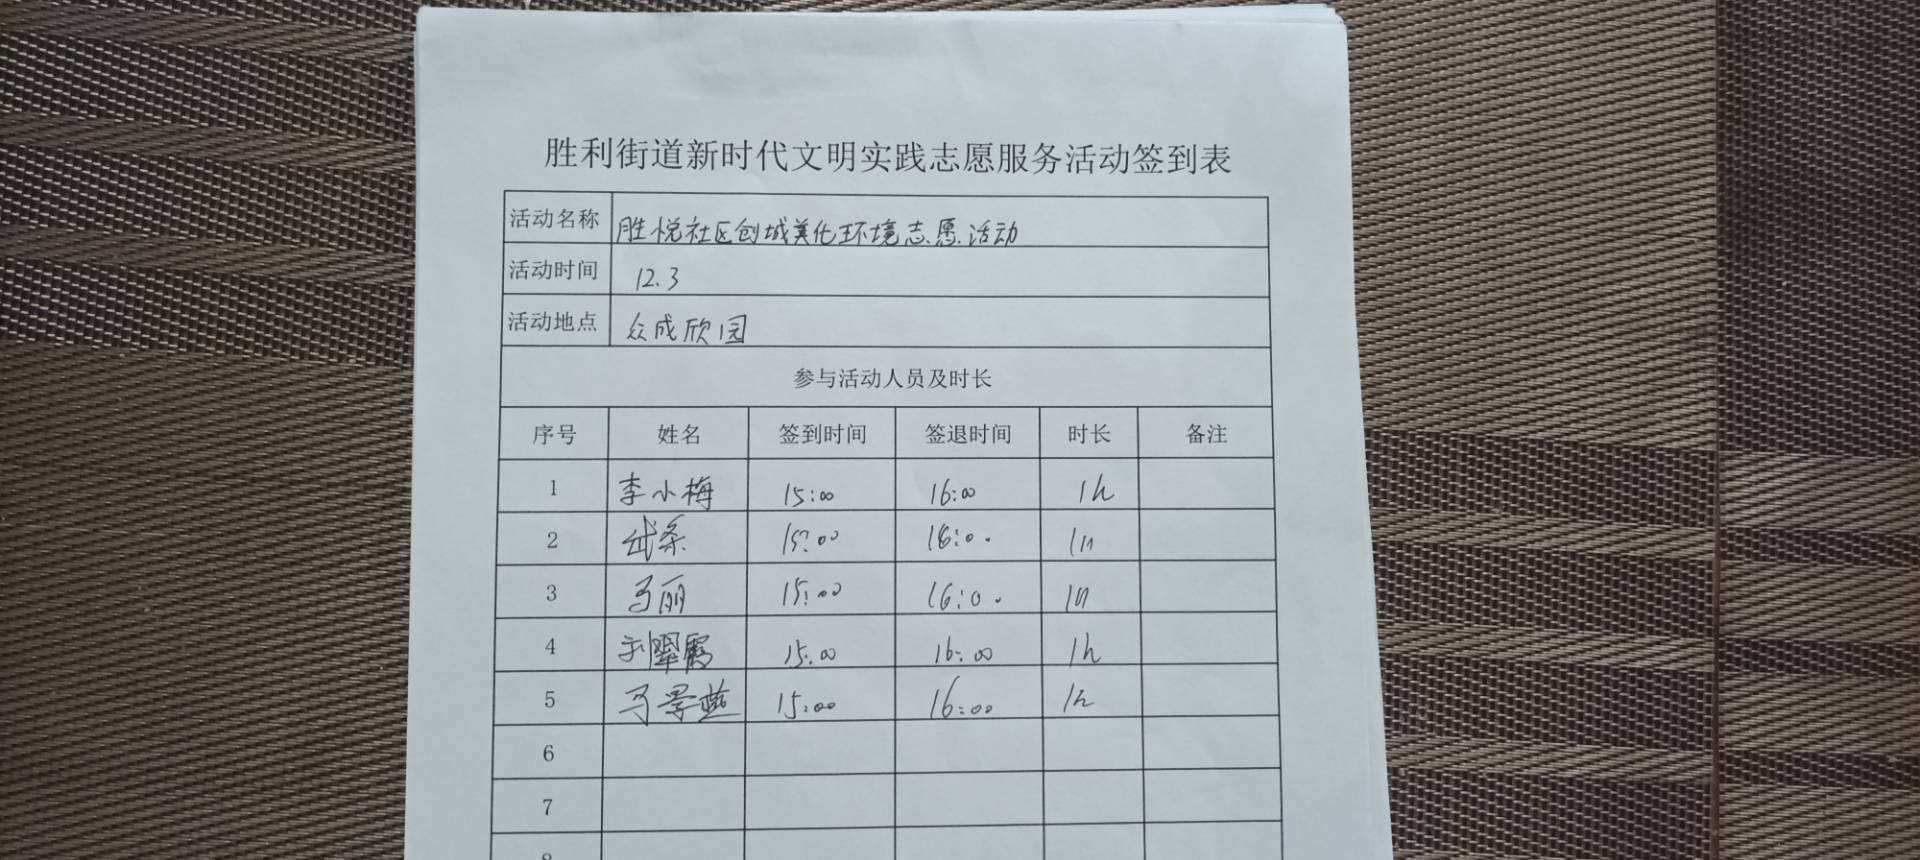 胜利街道新时代文明实践志愿服务活动签到表
活动名称 胜悦社区创城美化环境志愿活动
活动时间 12.3
活动地点 众成欣园
参与活动人员及时长
序号 姓名 签到时间 签退时间 时长 备注
1 李小梅 15:00 16:00 1h
2 15:00 16:00 1h
3 马丽 15:00 16:00 1h
4 15:00 16:00 1h
5 马景燕 15:00 16:00 1h
6
7